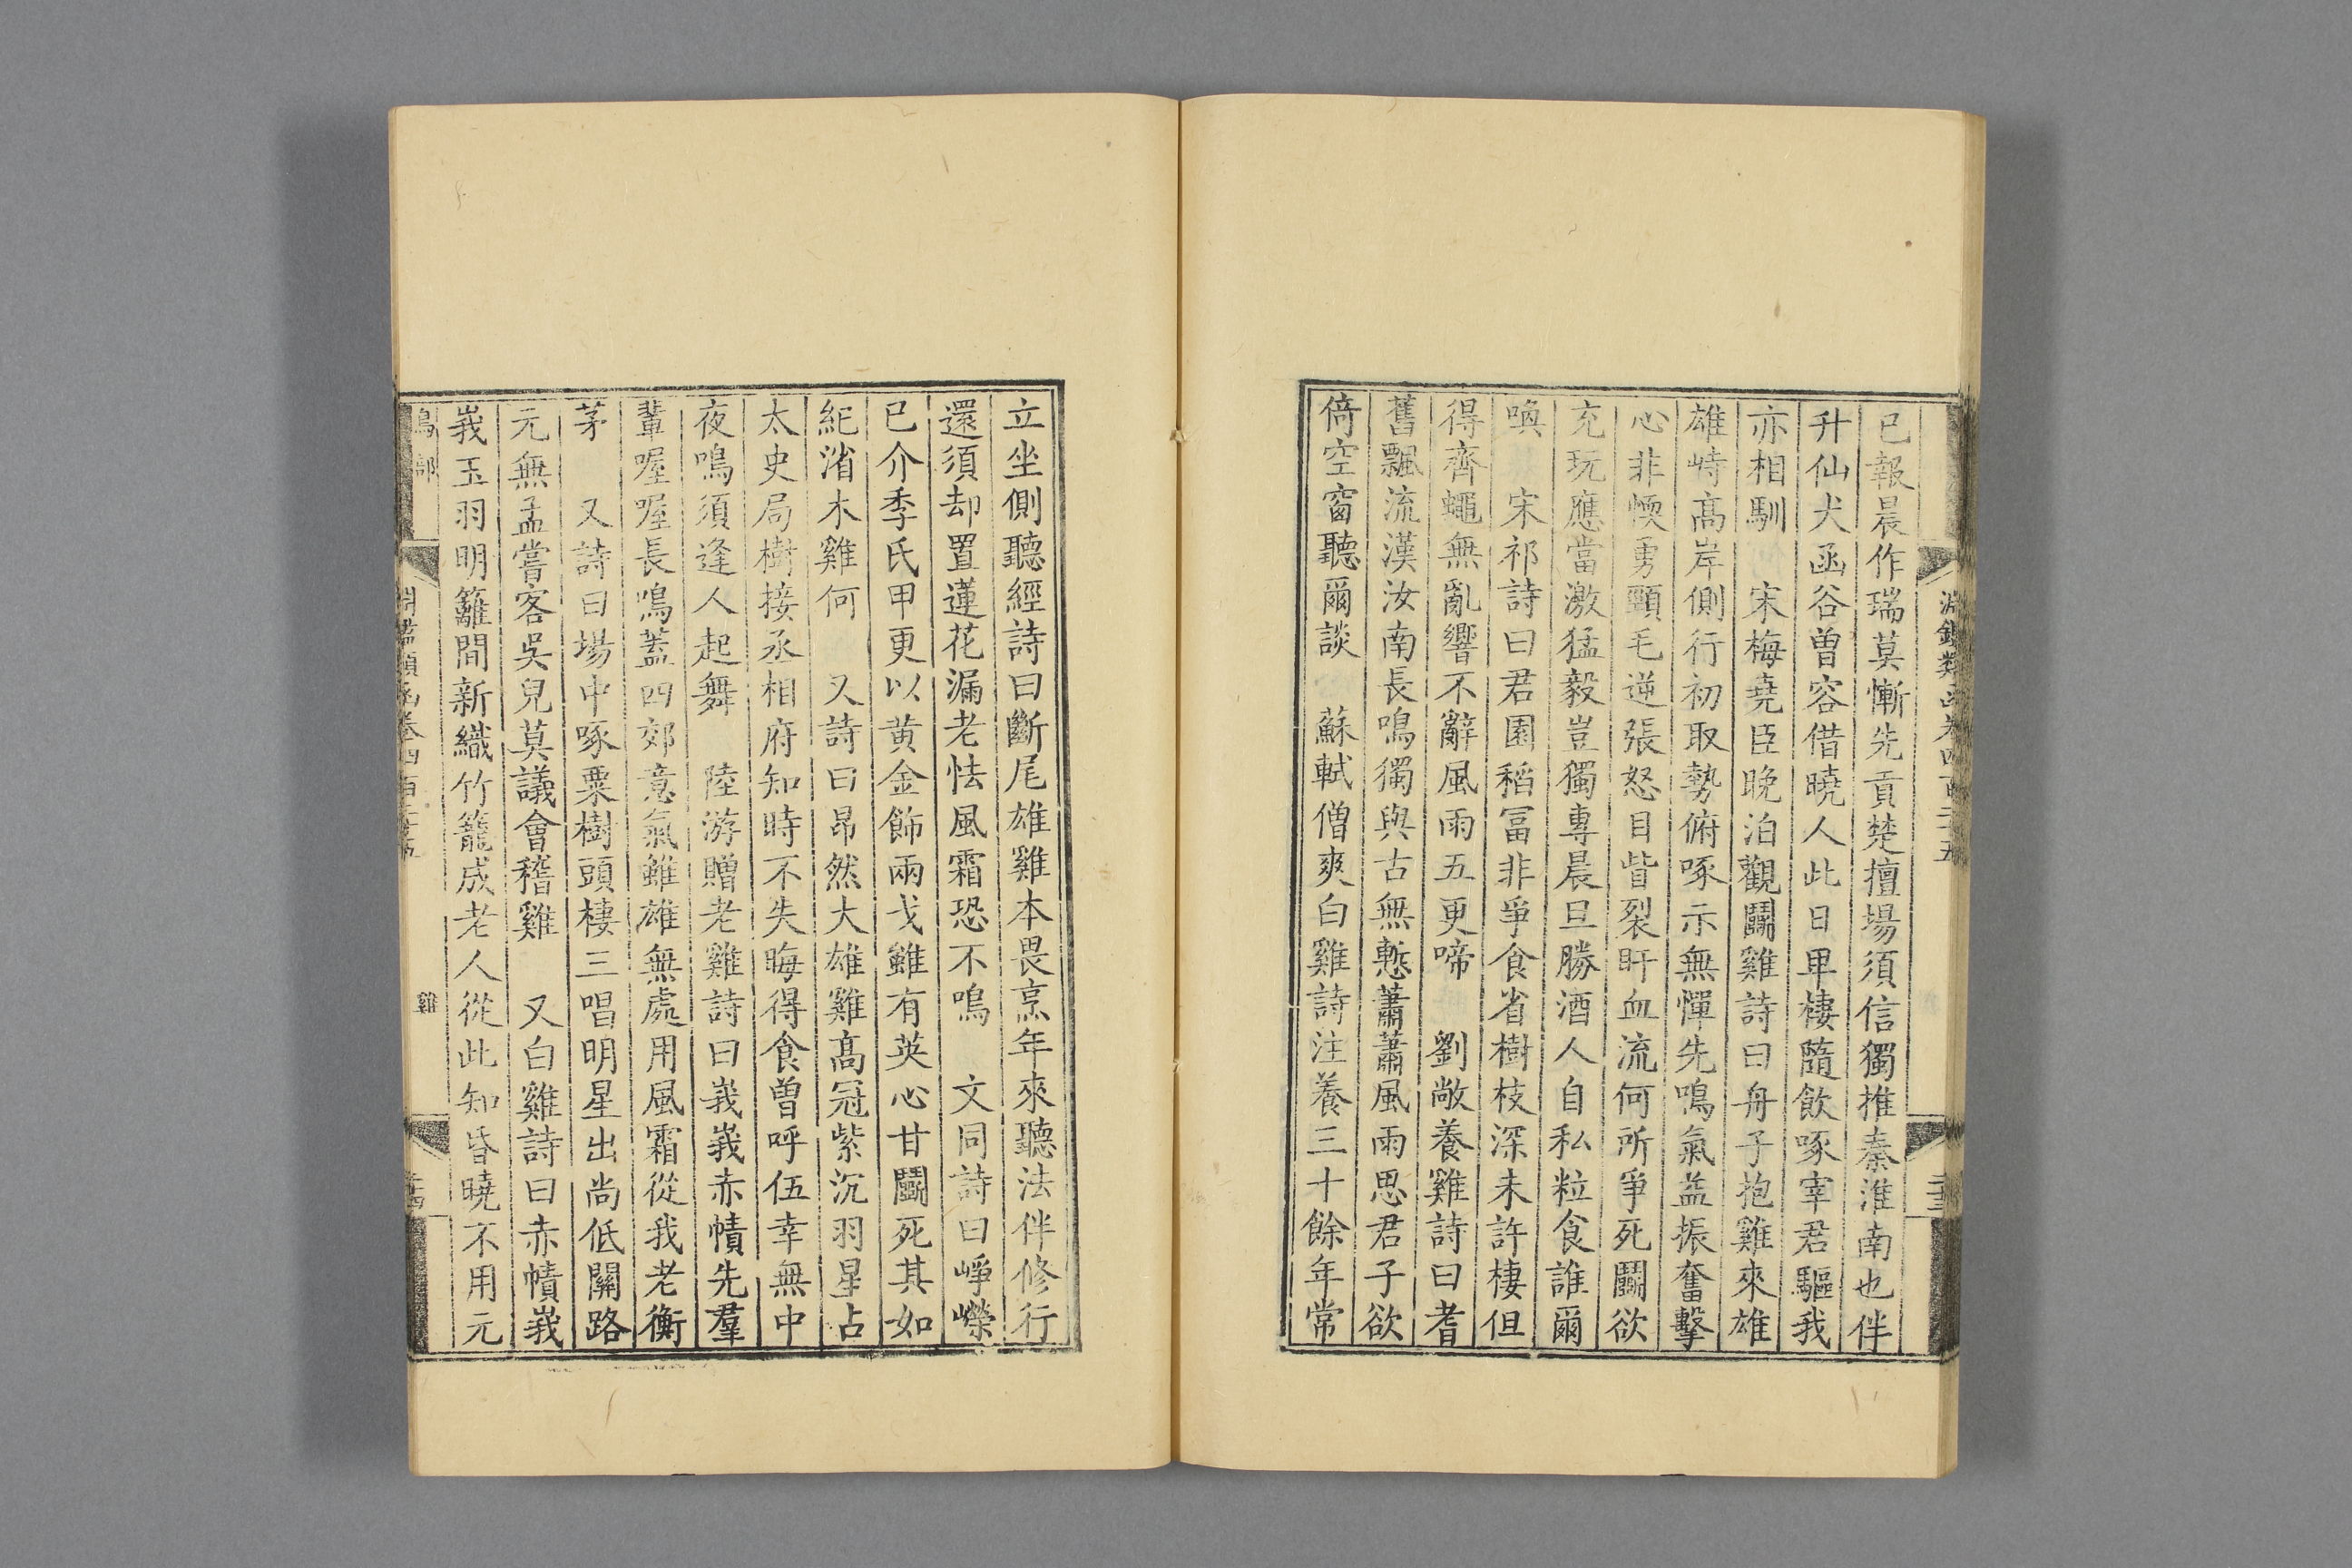 淵鑑類函卷四百二十五
二十三
已報晨作瑞莫慚先貢楚擅場須信獨推秦淮南也伴
升仙犬函谷曽容借曉人此日卑棲隨飲啄宰君驅我
亦相馴　宋梅堯臣晚泊觀鬭雞詩曰舟子抱雞來雄
雄峙髙岸側行初取勢俯啄示無憚先鳴氣益振奮擊
心非愞勇頸毛逆張怒目眥裂盱血流何所爭死鬭欲
充玩應當激猛毅豈獨專晨旦勝酒人自私粒食誰爾
喚　宋祁詩曰君園稻冨非爭食省樹枝深未許棲但
得齊蠅無亂響不辭風雨五更啼　劉敞養雞詩曰耆
舊飄流漢汝南長鳴獨與古無慙蕭蕭風雨思君子欲
倚空窗聽爾談　蘇軾僧爽白雞詩注養三十餘年常
立坐側聽經詩曰斷尾雄雞本畏烹年來聽法伴修行
還須却置蓮花漏老怯風霜恐不鳴　文同詩曰崢嶸
已介季氏甲更以黄金飾兩戈雖有英心甘鬭死其如
紀渻木雞何　又詩曰昂然大雄雞髙冠紫沉羽星占
太史局樹接丞相府知時不失晦得食曽呼伍幸無中
夜鳴須逢人起舞　陸游贈老雞詩曰峩峩赤幘先羣
輩喔喔長鳴蓋四郊意氣雖雄無處用風霜從我老衡
茅　又詩曰場中啄粟樹頭棲三唱明星出尚低關路
元無孟嘗客吳兒莫議會稽雞　又白雞詩曰赤幘峩
峩玉羽明籬間新織竹籠成老人從此知昏曉不用元
鳥部
淵鑑類函卷四百二十五
雞
二十四